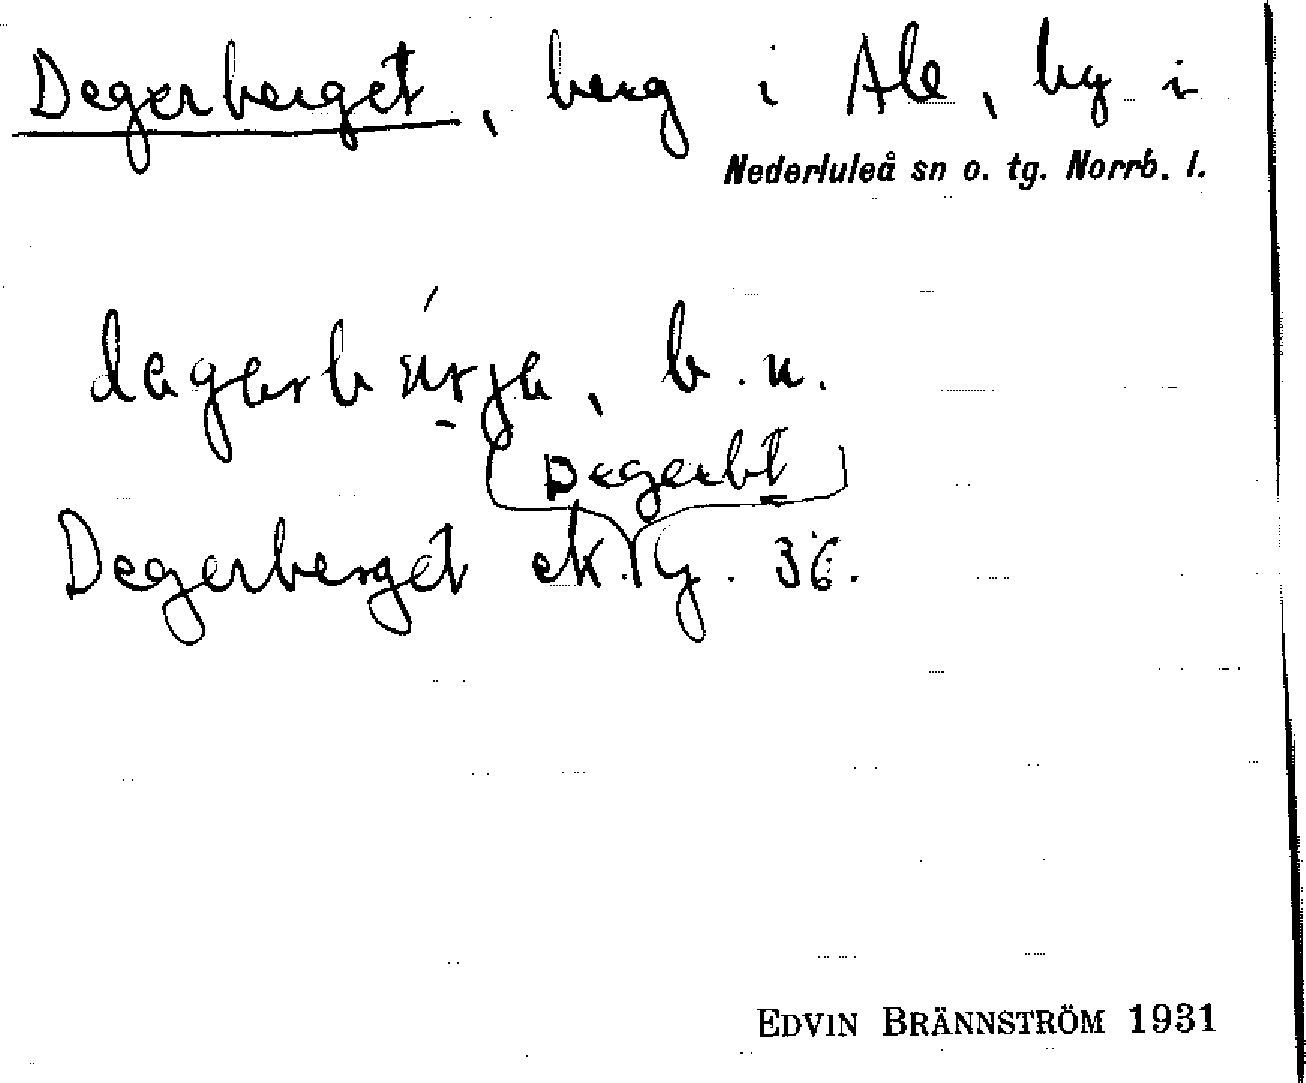 Degerberget, berg i Ale, by i
Nederluleå sn o. tg. Norrb. l.
b. u.
Degerbt
Degerberget ek. 36.
EDVIN BRÄNNSTRÖM 1931